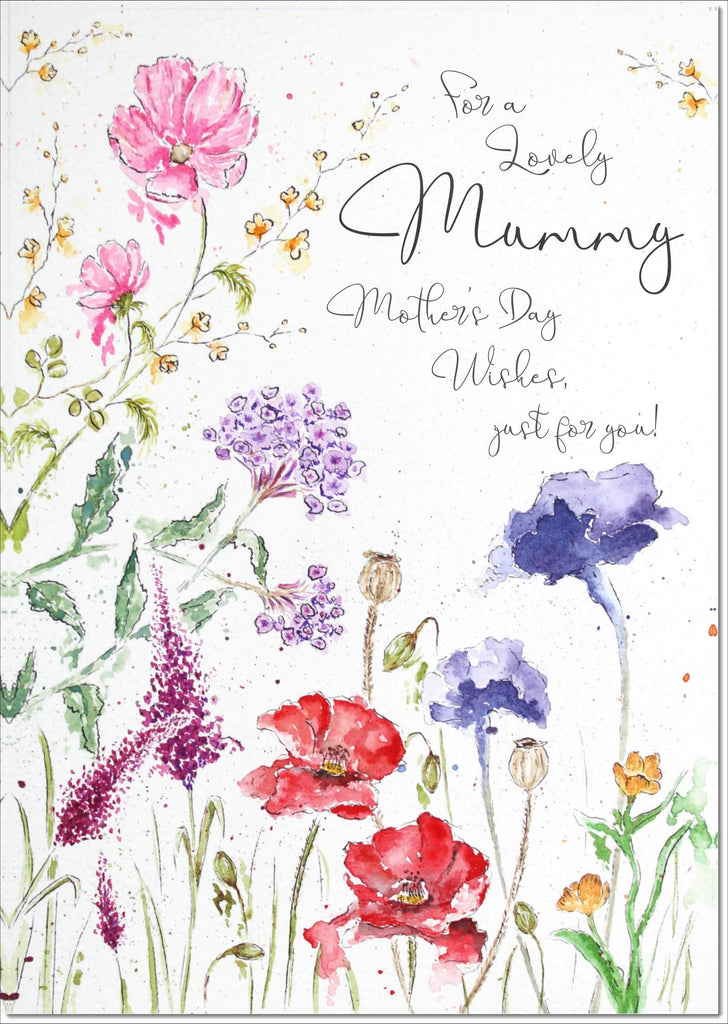 For a
Lovely
Mummy
Mother's Day
Wishes,
just for you!